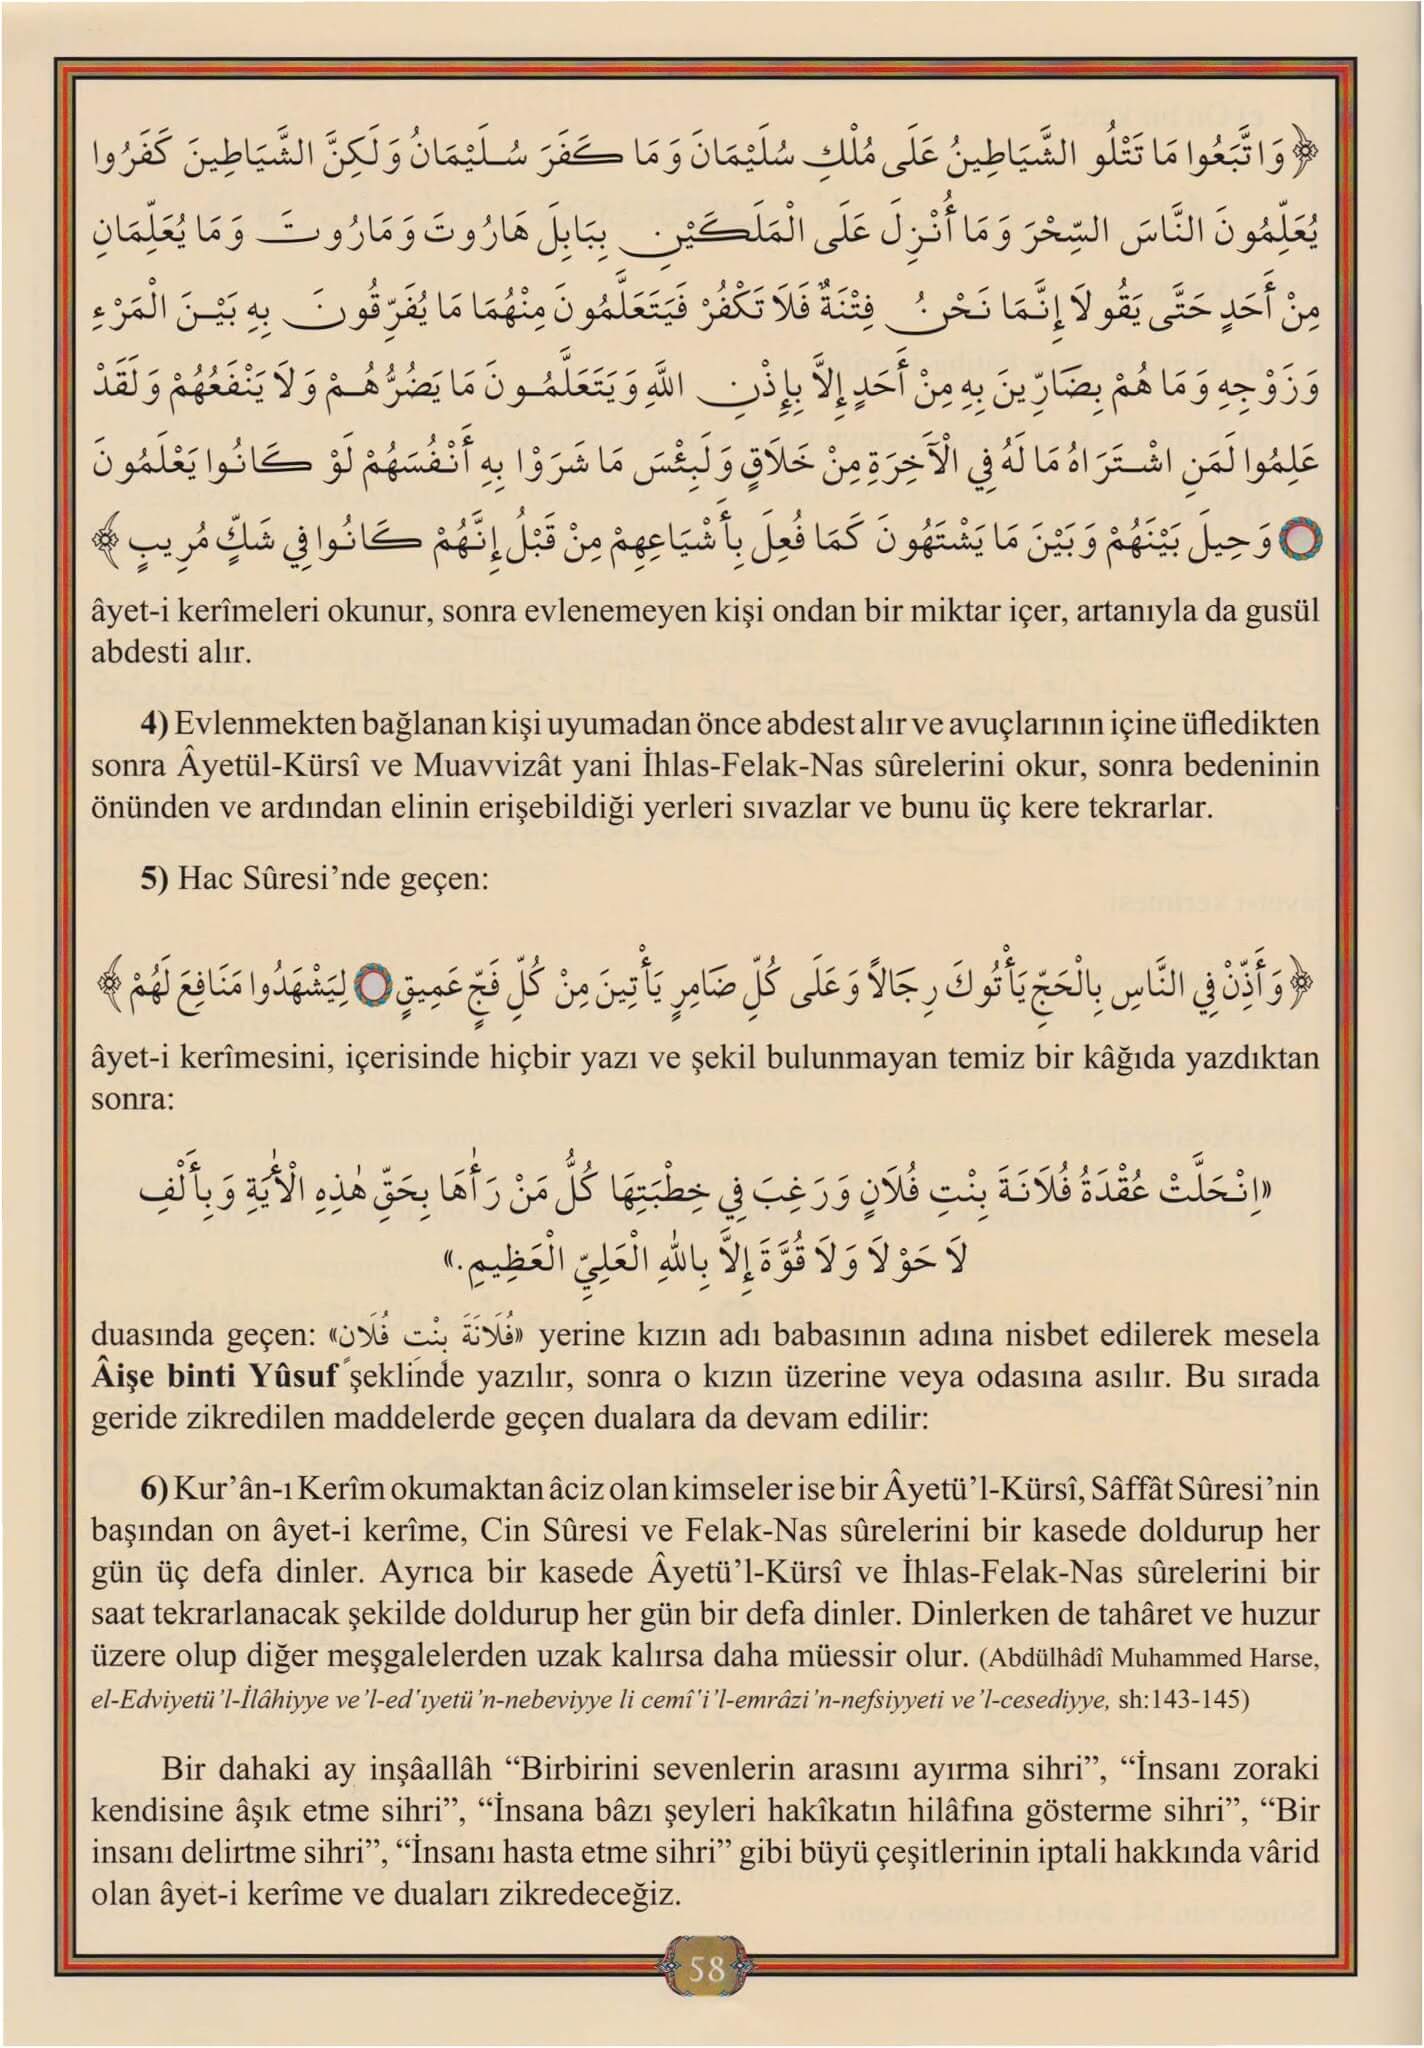 ﴿وَاتَّبَعُوا مَا تَتْلُو الشَّيَاطِينُ عَلَى مُلْكِ سُلَيْمَانَ وَمَا كَفَرَ سُلَيْمَانُ وَلَكِنَّ الشَّيَاطِينَ كَفَرُوا
يُعَلِّمُونَ النَّاسَ السِّحْرَ وَمَا أُنْزِلَ عَلَى الْمَلَكَيْنِ بِبَابِلَ هَارُوتَ وَمَارُوتَ وَمَا يُعَلِّمَانِ
مِنْ أَحَدٍ حَتَّى يَقُولَا إِنَّمَا نَحْنُ فِتْنَةٌ فَلَا تَكْفُرْ فَيَتَعَلَّمُونَ مِنْهُمَا مَا يُفَرِّقُونَ بِهِ بَيْنَ الْمَرْءِ
وَزَوْجِهِ وَمَا هُمْ بِضَارِّينَ بِهِ مِنْ أَحَدٍ إِلَّا بِإِذْنِ اللَّهِ وَيَتَعَلَّمُونَ مَا يَضُرُّهُمْ وَلَا يَنْفَعُهُمْ وَلَقَدْ
عَلِمُوا لَمَنِ اشْتَرَاهُ مَا لَهُ فِي الْآخِرَةِ مِنْ خَلَاقٍ وَلَبِئْسَ مَا شَرَوْا بِهِ أَنْفُسَهُمْ لَوْ كَانُوا يَعْلَمُونَ
وَحِيلَ بَيْنَهُمْ وَبَيْنَ مَا يَشْتَهُونَ كَمَا فُعِلَ بِأَشْيَاعِهِمْ مِنْ قَبْلُ إِنَّهُمْ كَانُوا فِي شَكٍّ مُرِيبٍ﴾
âyet-i kerîmeleri okunur, sonra evlenemeyen kişi ondan bir miktar içer, artanıyla da gusül
abdesti alır.
4) Evlenmekten bağlanan kişi uyumadan önce abdest alır ve avuçlarının içine üfledikten
sonra Âyetül-Kürsî ve Muavvizât yani İhlas-Felak-Nas sûrelerini okur, sonra bedeninin
önünden ve ardından elinin erişebildiği yerleri sıvazlar ve bunu üç kere tekrarlar.
5) Hac Sûresi’nde geçen:
﴿وَأَذِّنْ فِي النَّاسِ بِالْحَجِّ يَأْتُوكَ رِجَالًا وَعَلَى كُلِّ ضَامِرٍ يَأْتِينَ مِنْ كُلِّ فَجٍّ عَمِيقٍ لِيَشْهَدُوا مَنَافِعَ لَهُمْ﴾
âyet-i kerîmesini, içerisinde hiçbir yazı ve şekil bulunmayan temiz bir kâğıda yazdıktan
sonra:
«اِنْحَلَّتْ عُقْدَةُ فُلَانَةَ بِنْتِ فُلَانٍ وَرَغِبَ فِي خِطْبَتِهَا كُلُّ مَنْ رَاٰهَا بِحَقِّ هٰذِهِ الْاٰيَةِ وَبِأَلْفِ
لَا حَوْلَا وَلَا قُوَّةَ إِلَّا بِاللّٰهِ الْعَلِيِّ الْعَظِيمِ.»
duasında geçen: «فُلَانَةَ بِنْتِ فُلَانٍ» yerine kızın adı babasının adına nisbet edilerek mesela
Âişe binti Yûsuf şeklinde yazılır, sonra o kızın üzerine veya odasına asılır. Bu sırada
geride zikredilen maddelerde geçen dualara da devam edilir:
6) Kur’ân-ı Kerîm okumaktan âciz olan kimseler ise bir Âyetü’l-Kürsî, Sâffât Sûresi’nin
başından on âyet-i kerîme, Cin Sûresi ve Felak-Nas sûrelerini bir kasede doldurup her
gün üç defa dinler. Ayrıca bir kasede Âyetü’l-Kürsî ve İhlas-Felak-Nas sûrelerini bir
saat tekrarlanacak şekilde doldurup her gün bir defa dinler. Dinlerken de tahâret ve huzur
üzere olup diğer meşgalelerden uzak kalırsa daha müessir olur. (Abdülhâdî Muhammed Harse,
el-Edviyetü’l-İlâhiyye ve’l-ed‘ıyetü’n-nebeviyye li cemî‘i’l-emrâzi’n-nefsiyyeti ve’l-cesediyye, sh:143-145)
Bir dahaki ay inşâallâh “Birbirini sevenlerin arasını ayırma sihri”, “İnsanı zoraki
kendisine âşık etme sihri”, “İnsana bâzı şeyleri hakîkatın hilâfına gösterme sihri”, “Bir
insanı delirtme sihri”, “İnsanı hasta etme sihri” gibi büyü çeşitlerinin iptali hakkında vârid
olan âyet-i kerîme ve duaları zikredeceğiz.
58